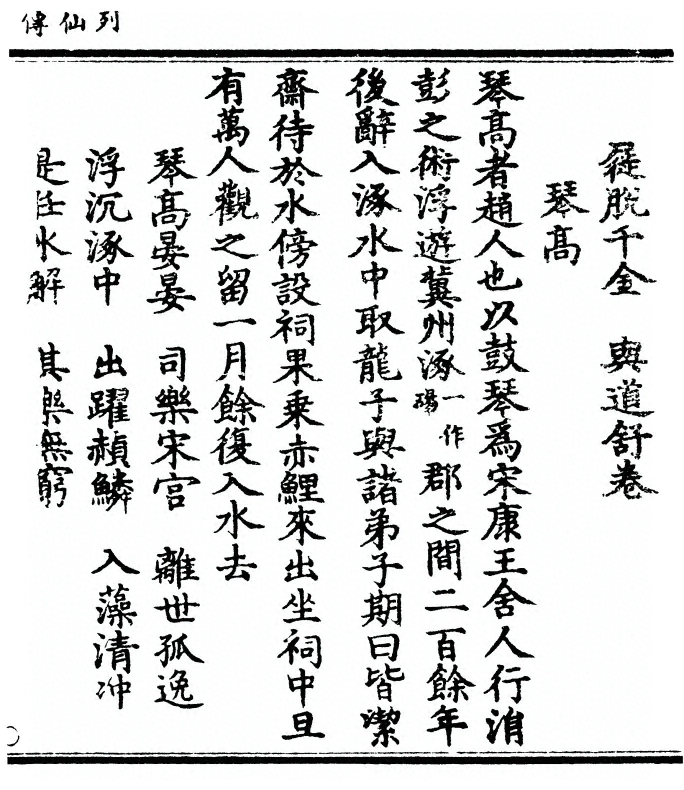 列仙傳
屣脫千金　與道舒卷
琴髙
琴髙者趙人也以鼓琴爲宋康王舍人行涓
彭之術浮遊冀州涿一作碭郡之間二百餘年
後辭入涿水中取龍子與諸弟子期曰皆潔
齋待於水傍設祠果乗赤鯉來出坐祠中旦
有萬人觀之留一月餘復入水去
琴髙晏晏　司樂宋宫　離世孤逸
浮沉涿中　出躍赬鱗　入藻清冲
是任水解　其樂無窮